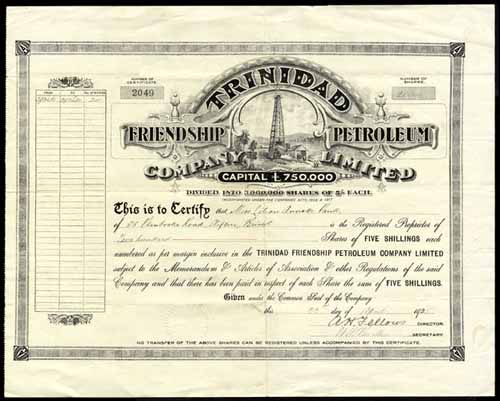 NUMBER OF CERTIFICATE
2049
NUMBER OF SHARES
TRINIDAD
FRIENDSHIP PETROLEUM
COMPANY LIMITED
CAPITAL £750,000
DIVIDED INTO 3,000,000 SHARES OF 5/- EACH.
INCORPORATED UNDER THE COMPANIES ACTS, 1908 & 1917
This is to Certify that Miss
of Road, Bristol is the Registered Proprietor of
Two hundred Shares of FIVE SHILLINGS each
numbered as per margin inclusive in the TRINIDAD FRIENDSHIP PETROLEUM COMPANY LIMITED
subject to the Memorandum & Articles of Association & other Regulations of the said
Company and that there has been paid in respect of each Share the sum of FIVE SHILLINGS.
Given under the Common Seal of the Company
this day of 192
A. H. Fellows
DIRECTOR.
SECRETARY.
NO TRANSFER OF THE ABOVE SHARES CAN BE REGISTERED UNLESS ACCOMPANIED BY THIS CERTIFICATE.